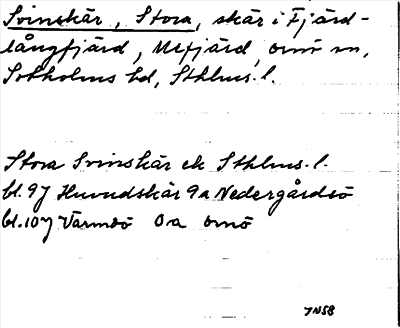 Svinskär, Stora, skär i Fjärd-
långfjärd, Mefjärd, Ornö sn,
Sotholms hd, Sthlms l.
Stora Svinskär ek Sthlms l.
bl. 97 Huvudskär 9a Nedergårdsö
bl. 107 Värmdö 0a Ornö
JN58